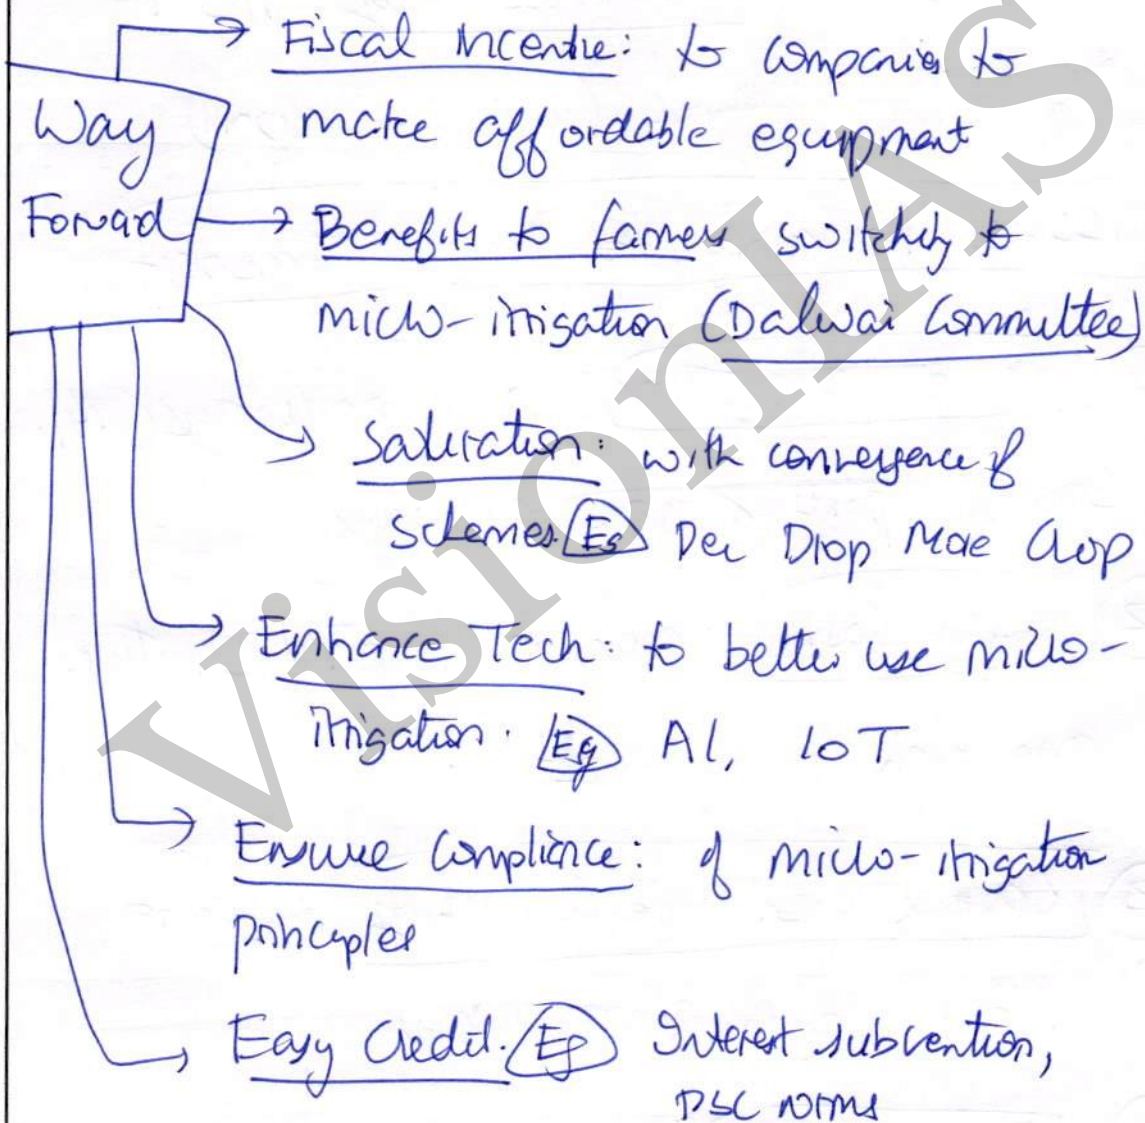 Way
Forward
Fiscal Incentive: to companies to
make affordable equipment
Benefits to farmers switching to
micro-irrigation (Dalwai Committee)
Saturation: with convergence of
schemes. Eg Per Drop More Crop
Enhance Tech: to better use micro-
irrigation. Eg AI, IoT
Ensure Compliance: of micro-irrigation
principles
Easy Credit. Eg Interest subvention,
PSL norms
VisionIAS